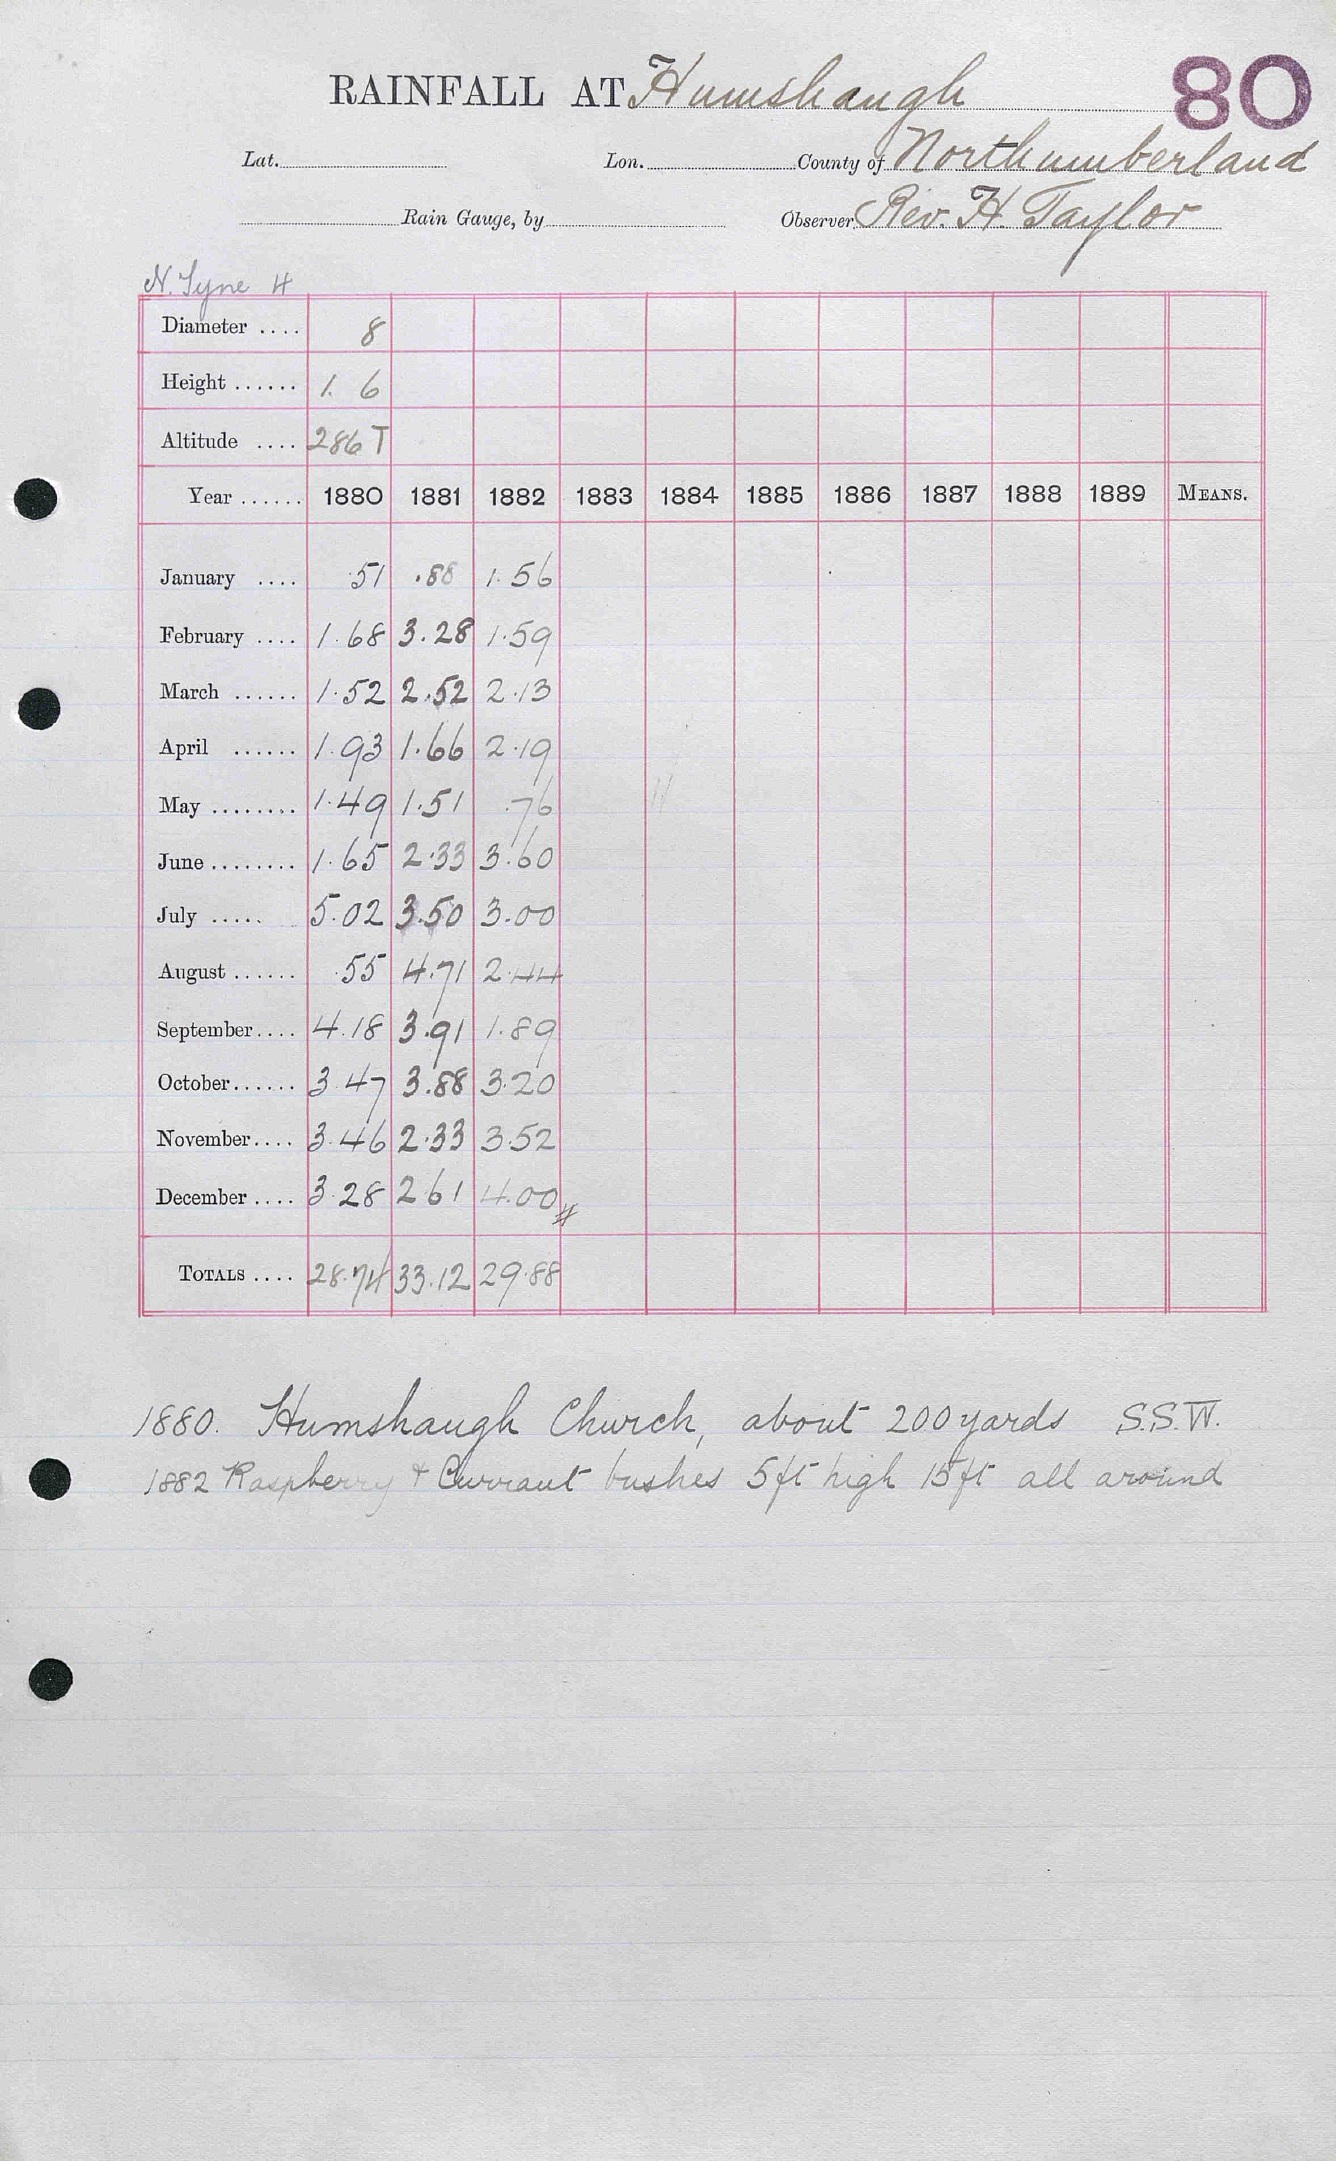 RAINFALL AT Humshaugh 80
Lat. Lon. County of Northumberland
Rain Gauge, by Observer, Rev. H. Taylor
N. Tyne H
Diameter .... 8
Height ...... 1. 6
Altitude .... 286 T
Year ...... 1880 1881 1882 1883 1884 1885 1886 1887 1888 1889 MEANS.
January .... .51 .88 1.56
February .... 1.68 3.28 1.59
March ...... 1.52 2.52 2.13
April ...... 1.93 1.66 2.19
May ........ 1.49 1.51 .76
June ........ 1.65 2.33 3.60
July ..... 5.02 3.50 3.00
August ...... .55 4.71 2.44
September.... 4.18 3.91 1.89
October...... 3.47 3.88 3.20
November.... 3.46 2.33 3.52
December .... 3.28 2.61 4.00
TOTALS .... 28.74 33.12 29.88
1880. Humshaugh Church, about 200 yards S.S.W.
1882 Raspberry & Currant bushes 5ft high 15ft all around